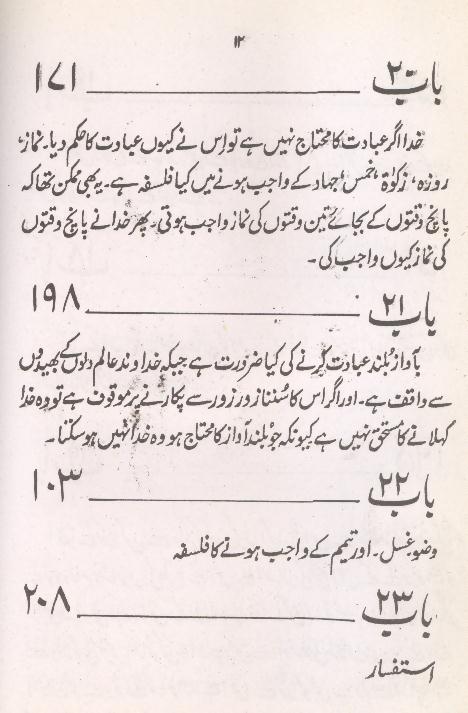 ۱۲
باب ۲۰ ۱۷۱
خدا اگر عبادت کا محتاج نہیں ہے تو اس نے کیوں عبادت کا حکم دیا۔ نماز،
روزہ، زکوٰة، خمس، جہاد کے واجب ہونے میں کیا فلسفہ ہے۔ یہ بھی ممکن تھا کہ
پانچ وقتوں کے بجائے تین وقتوں کی نماز واجب ہوتی۔ پھر خدا نے پانچ وقتوں
کی نماز کیوں واجب کی۔
باب ۲۱ ۱۹۸
بآواز بلند عبادت کرنے کی کیا ضرورت ہے جبکہ خداوند عالم دلوں کے بھیدوں
سے واقف ہے۔ اور اگر اس کا سننا زور زور سے پکارنے پر موقوف ہے تو وہ خدا
کہلانے کا مستحق نہیں ہے کیونکہ جو بلند آواز کا محتاج ہو وہ خدا نہیں ہو سکتا۔
باب ۲۲ ۱۰۳
وضو، غسل۔ اور تیمم کے واجب ہونے کا فلسفہ
باب ۲۳ ۲۰۸
استفسار